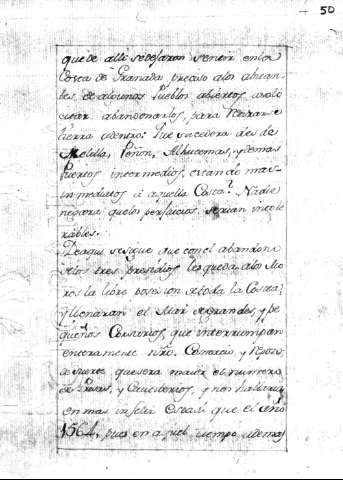 50
que de alli se dejaron sentir en la
Costa de Granada preciso a los abitan-
tes, de algunos Pueblos abiertos, a solo
citar abandonarlos, para retirarse
tierra adentro: que sucedera desde
Melilla, Peñon, Alhucemas, y demas
Puertos intermedios, estando mas
inmediatos á aquella Costa? Nadie
negara que los perjuicios serian intole
rables.
De aqui se sigue que con el abandono
de los tres presidios les queda a los Mo
ros la libre posesion de toda la Costa:
y llenaran el Mar de grandes, y pe
queños Corsarios, que interrumpan
enteramente ntro. Comercio, y reposo,
de suerte que sera mayor el numero
de Presas, y Cautiverios, y nos hallaremos
en mas infeliz Estado que el año
1564, pues en aquel tiempo ademas